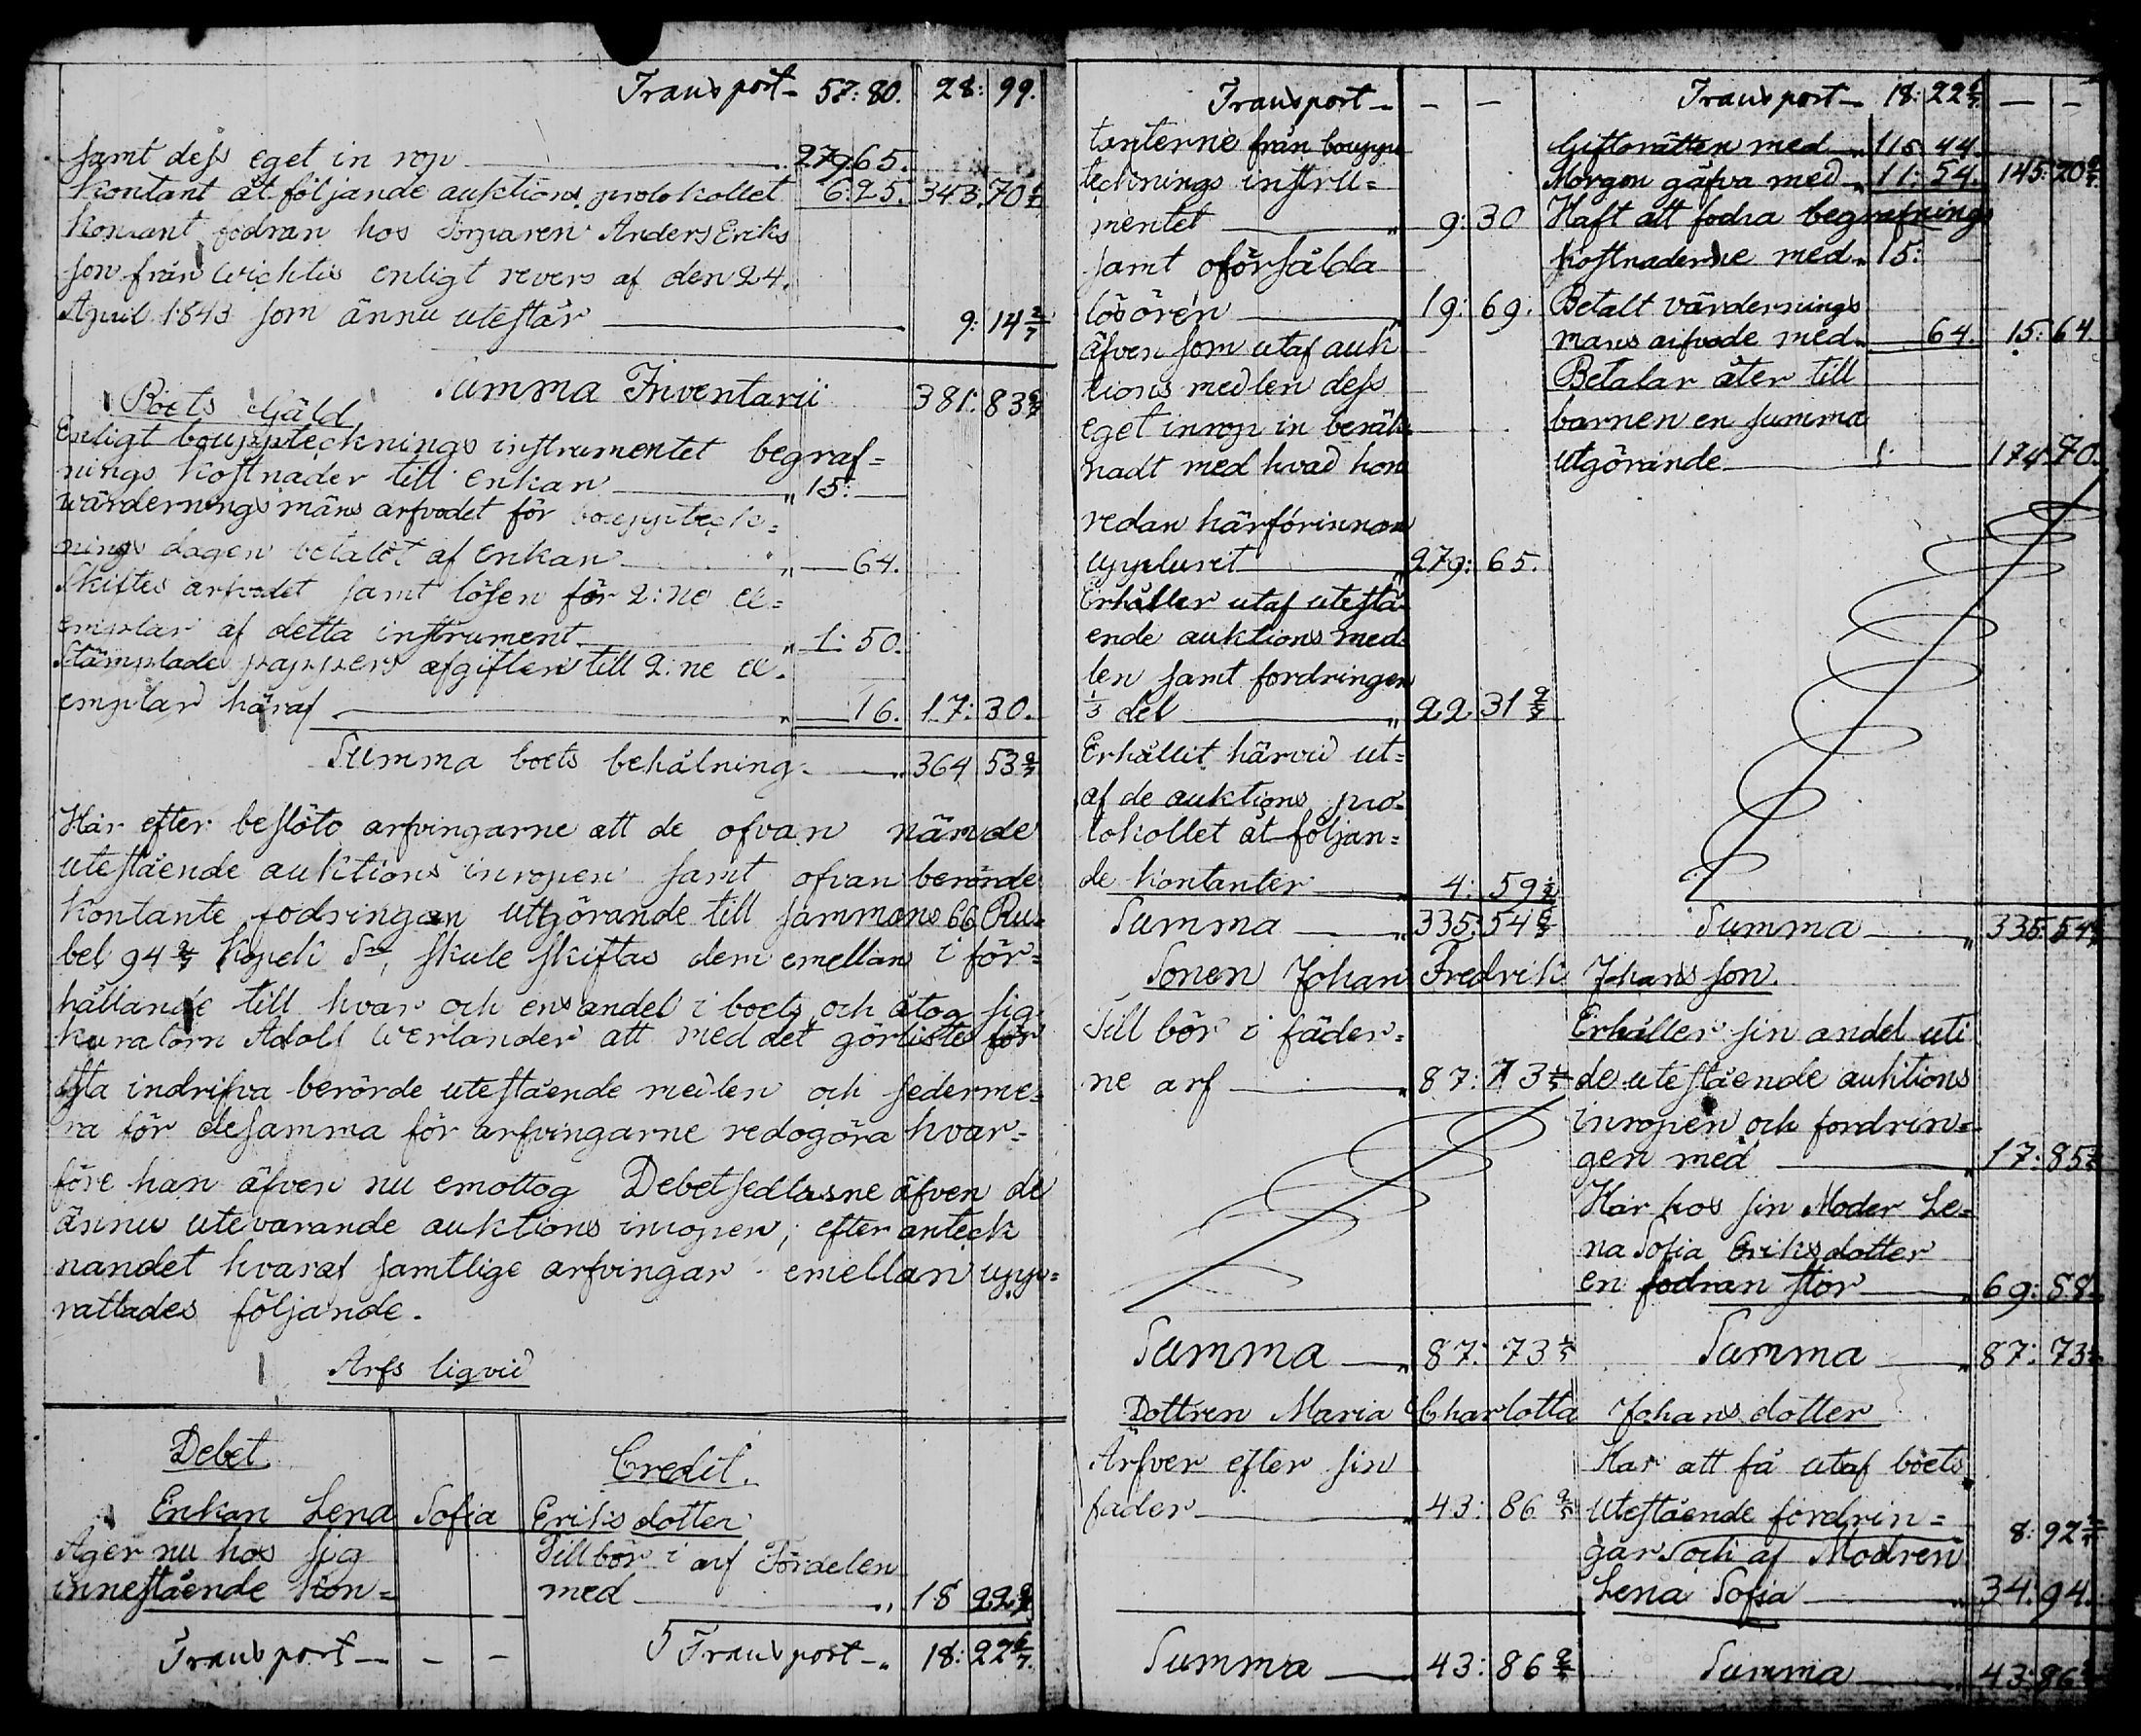 Transport- 57:80. 28: 99.
samt dess eget in rop 279 65.
Kontant åt följande auktions protokollet 6:25. 343. 70 6/7
Kontant fodran hos Torparen Anders Eriks
son från Wichtis enligt revers af den 24.
April 1843 som ännu utestår 9: 14 2/7
Summa Inventarii 381: 83
Boets Gäld
Enligt bouppteknings instrumentet begraf=
nings kostnader till Enkan 15:
wärdernings mäns arfvodet för bouppteck=
nings dagen betalot af enkan 64.
Skiftes arfvodet samt lösen för 2:ne ex=
emplar af detta instrument 1: 50.
Stämplade pappers afgiften till 2:ne ex.
emplar häraf 16. 17: 30.
Summa boets behålning 364 53
Här efter beslöto arfvingarne att de ofvan nämde
utestående auktions inropen samt ofvan berörde
Kontante fodringen uttgörande till sammans 66 Ru=
bel 94 2/7 Kopek Sr, skule skiftas dem emellan i för=
hållande till hvar och ens andel i boets, och åtog sig
Kuratorn Adolf Werlander att med det görligste för
sta indrifva berörde utestående medlen och sederme=
ra för desamma för arfvingarne redogöra hvar=
före han äfven nu emottog Debetsedlarne äfven de
ännu utevarande auktions inropen; efter anteck
nandet hvaraf samtlige arfvingar emellan upp=
rattades följande.
Arfs liqvid
Debet. Credit.
Enkan Lena Sofia Eriks dotter
Äger nu hos sig
innestående Kon=
Tillbör i arf Fördelen
med 18 22
Transport - - Transport 18: 22 6/7
Transport - -
tanterne från bouppe
tecknings instru=
mentet 9: 30
samt oförsålda
lösören 19: 69.
äfven som utaf auk
tions medlen dess
eget inrop in beräk
nadt med hvad hon
redan härförinnan
uppburit 279: 65.
Erhåller utaf utestå
ende auktions med
len samt fordringen
1/3 del 22 31
Erhållit härvid ut=
af de auktions pro=
tokollet åt följan=
de kontanter 4: 59
Summa 335: 54
Transport 18: 22 6/7 - -
Giftorätten med 115 44
Morgon gåfva med 11: 54. 145: 20
Haft att fodra begrafnings
kostnaderne med 15:
Betalt värdernings
mans arfvode med 64. 15: 64.
Betalar åter till
barnen en summa
utgörande 174 70.
Summa 335: 54
Sonen Johan Fredrik Johans son.
Till bör i fäder=
ne arf 87: 73
Erhåller sin andel uti
de utestående auktions
inropen och fordrin=
gen med 17: 85
Har hos sin Moder Le=
na Sofia Eriksdotter
en fodran stor 69: 88.
Summa 87: 73 Summa 87: 73
Dottren Maria Charlotta Johans dotter
Ärfver efter sin
fader 43: 86
Har att få utaf boets
utestående fordrin=
gar 8: 92
och af Modren
Lena Sofia 34: 94.
Summa 43: 86 Summa 43: 86